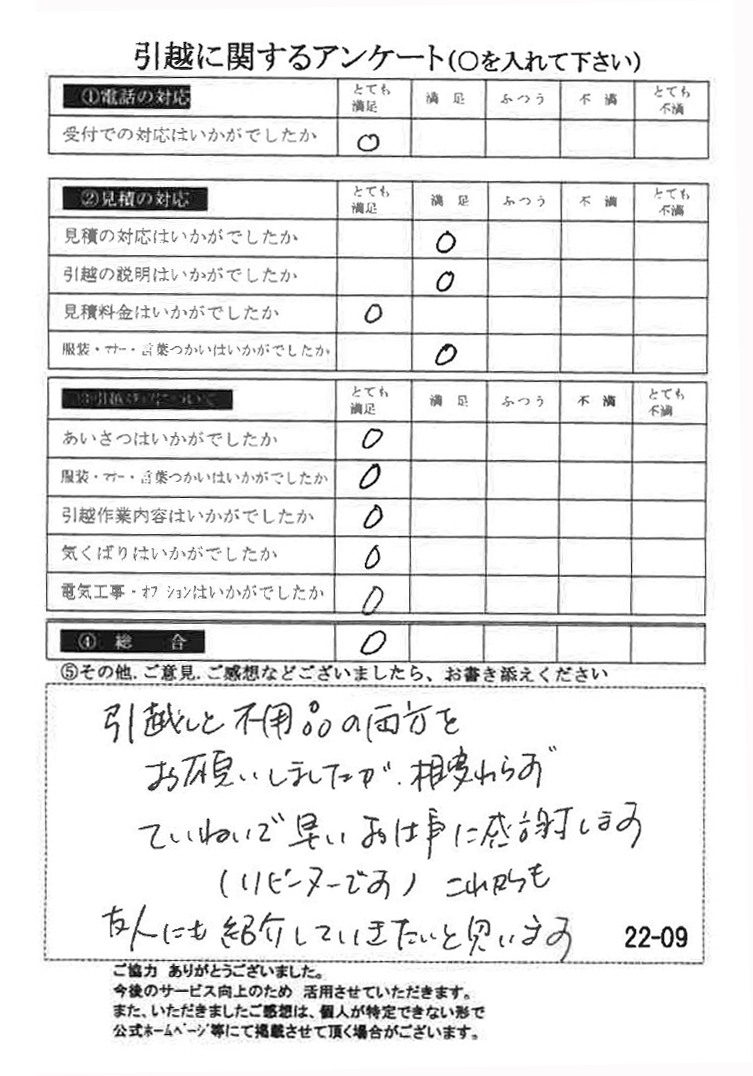 引越に関するアンケート(○を入れて下さい)
①電話の対応 とても満足 満足 ふつう 不満 とても不満
受付での対応はいかがでしたか ○
②見積の対応 とても満足 満足 ふつう 不満 とても不満
見積の対応はいかがでしたか ○
引越の説明はいかがでしたか ○
見積料金はいかがでしたか ○
服装・マナー・言葉つかいはいかがでしたか ○
③引越スタッフについて とても満足 満足 ふつう 不満 とても不満
あいさつはいかがでしたか ○
服装・マナー・言葉つかいはいかがでしたか ○
引越作業内容はいかがでしたか ○
気くばりはいかがでしたか ○
電気工事・オプションはいかがでしたか ○
④ 総 合 ○
⑤その他.ご意見.ご感想などございましたら、お書き添えください
引越しと不用品の両方を
お願いしましたが、相変わらず
ていねいで早いお仕事に感謝します
(リピーターです) これからも
友人にも紹介していきたいと思います
22-09
ご協力 ありがとうございました。
今後のサービス向上のため 活用させていただきます。
また、いただきましたご感想は、個人が特定できない形で
公式ホームページ等にて掲載させて頂く場合がございます。